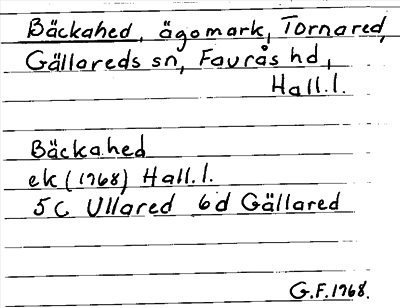 Bäckahed, ägomark, Tornared,
Gällareds sn, Faurås hd,
Hall.l.
Bäckahed
ek (1968) Hall.l.
5C Ullared 6d Gällared
G.F.1968.